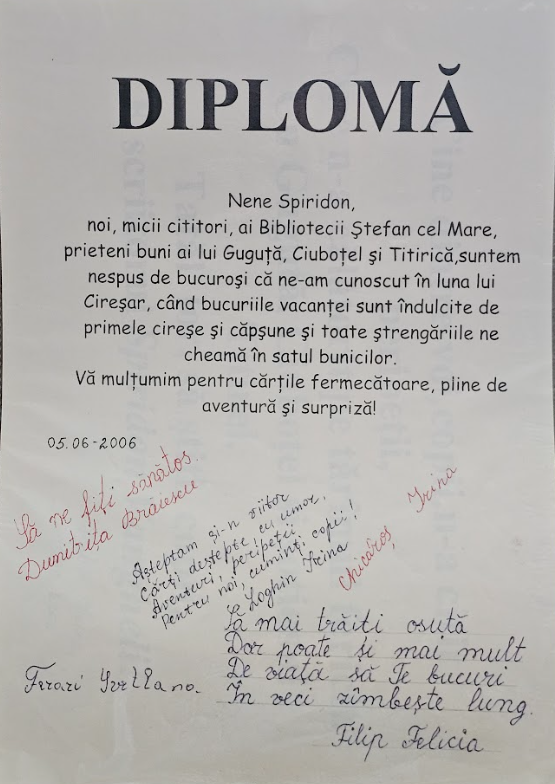 DIPLOMĂ
Nene Spiridon,
noi, micii cititori, ai Bibliotecii Ştefan cel Mare,
prieteni buni ai lui Guguţă, Ciuboţel şi Titirică,suntem
nespus de bucuroşi că ne-am cunoscut în luna lui
Cireşar, când bucuriile vacanţei sunt îndulcite de
primele cireşe şi căpşune şi toate ştrengăriile ne
cheamă în satul bunicilor.
Vă mulţumim pentru cărţile fermecătoare, pline de
aventură şi surpriză!
05.06-2006
Să ne fiţi sănătos.
Dumitriţa Brăiescu
Aşteptam şi-n viitor
Cărţi deştepte cu umor,
Aventuri, peripeţii
Pentru noi, cuminţi copii!
Loghin Irina
Chicăroş Irina
Să mai trăiti osută
Dar poate şi mai mult
De viaţă să Te bucuri
În veci zîmbeşte lung.
Filip Felicia
Ferari